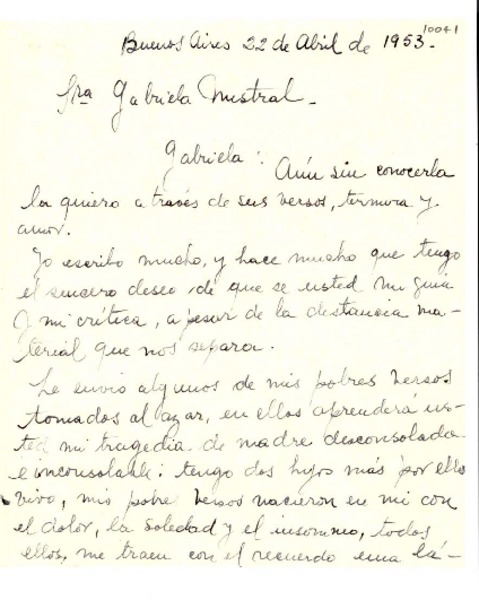 10041
Buenos Aires 22 de Abril de 1953.
Sra Gabriela Mistral_
Gabriela: Aún sin conocerla
la quiero a través de sus versos, ternura y
amor.
Yo escribo mucho, y hace mucho que tengo
el sincero deseo, de que sea usted mi guia
y mi crítica, a pesar de la distancia ma-
terial que nos separa.
Le envio algunos de mis pobres versos
tomados al azar, en ellos aprenderá us-
ted mi tragedia de madre desconsolada
e inconsolable: tengo dos hijos más por ellos
vivo, mis pobres versos nacieron en mi con
el dolor, la soledad y el insomnio, todos
ellos, me traen con el recuerdo una lá-